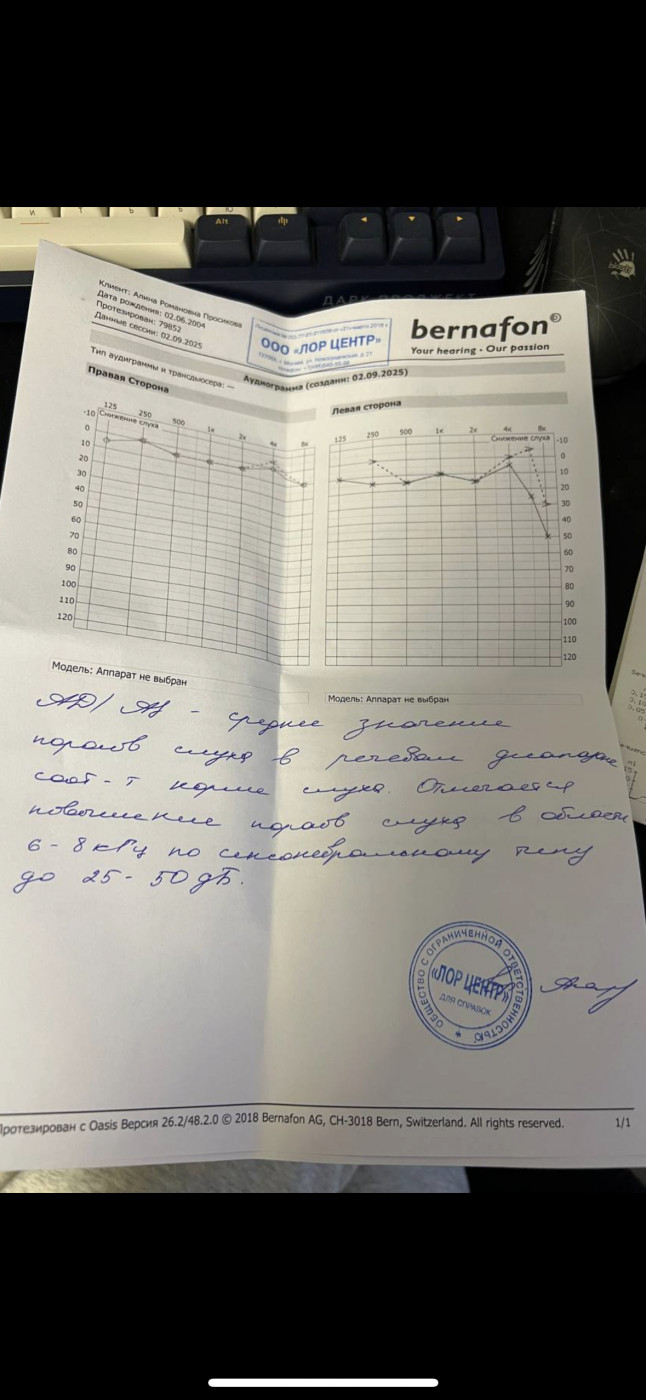 И
Ю
Alt
Клиент: Алина Романовна Просикова
Дата рождения: 02.06.2004
Протезирован: 79852
Данные сессии: 02.09.2025
ООО «ЛОР ЦЕНТР»
bernafon®
Your hearing • Our passion
Тип аудиограммы и трансдьюсера: —
Аудиограмма (создани: 02.09.2025)
Правая Сторона
Левая сторона
125 250 500 1к 2к 4к 8к
Снижение слуха
-10
0
10
20
30
40
50
60
70
80
90
100
110
120
125 250 500 1к 2к 4к 8к
Снижение слуха
-10
0
10
20
30
40
50
60
70
80
90
100
110
120
Модель: Аппарат не выбран
Модель: Аппарат не выбран
AD/ AS - среднее значение
порогов слуха в речевом диапазоне
соот-т норме слуха. Отмечается
повышение порогов слуха в области
6 - 8 кГц по сенсоневральному типу
до 25 - 50 дБ.
ОБЩЕСТВО С ОГРАНИЧЕННОЙ ОТВЕТСТВЕННОСТЬЮ
«ЛОР ЦЕНТР»
ДЛЯ СПРАВОК
Протезирован с Oasis Версия 26.2/48.2.0 © 2018 Bernafon AG, CH-3018 Bern, Switzerland. All rights reserved.
1/1